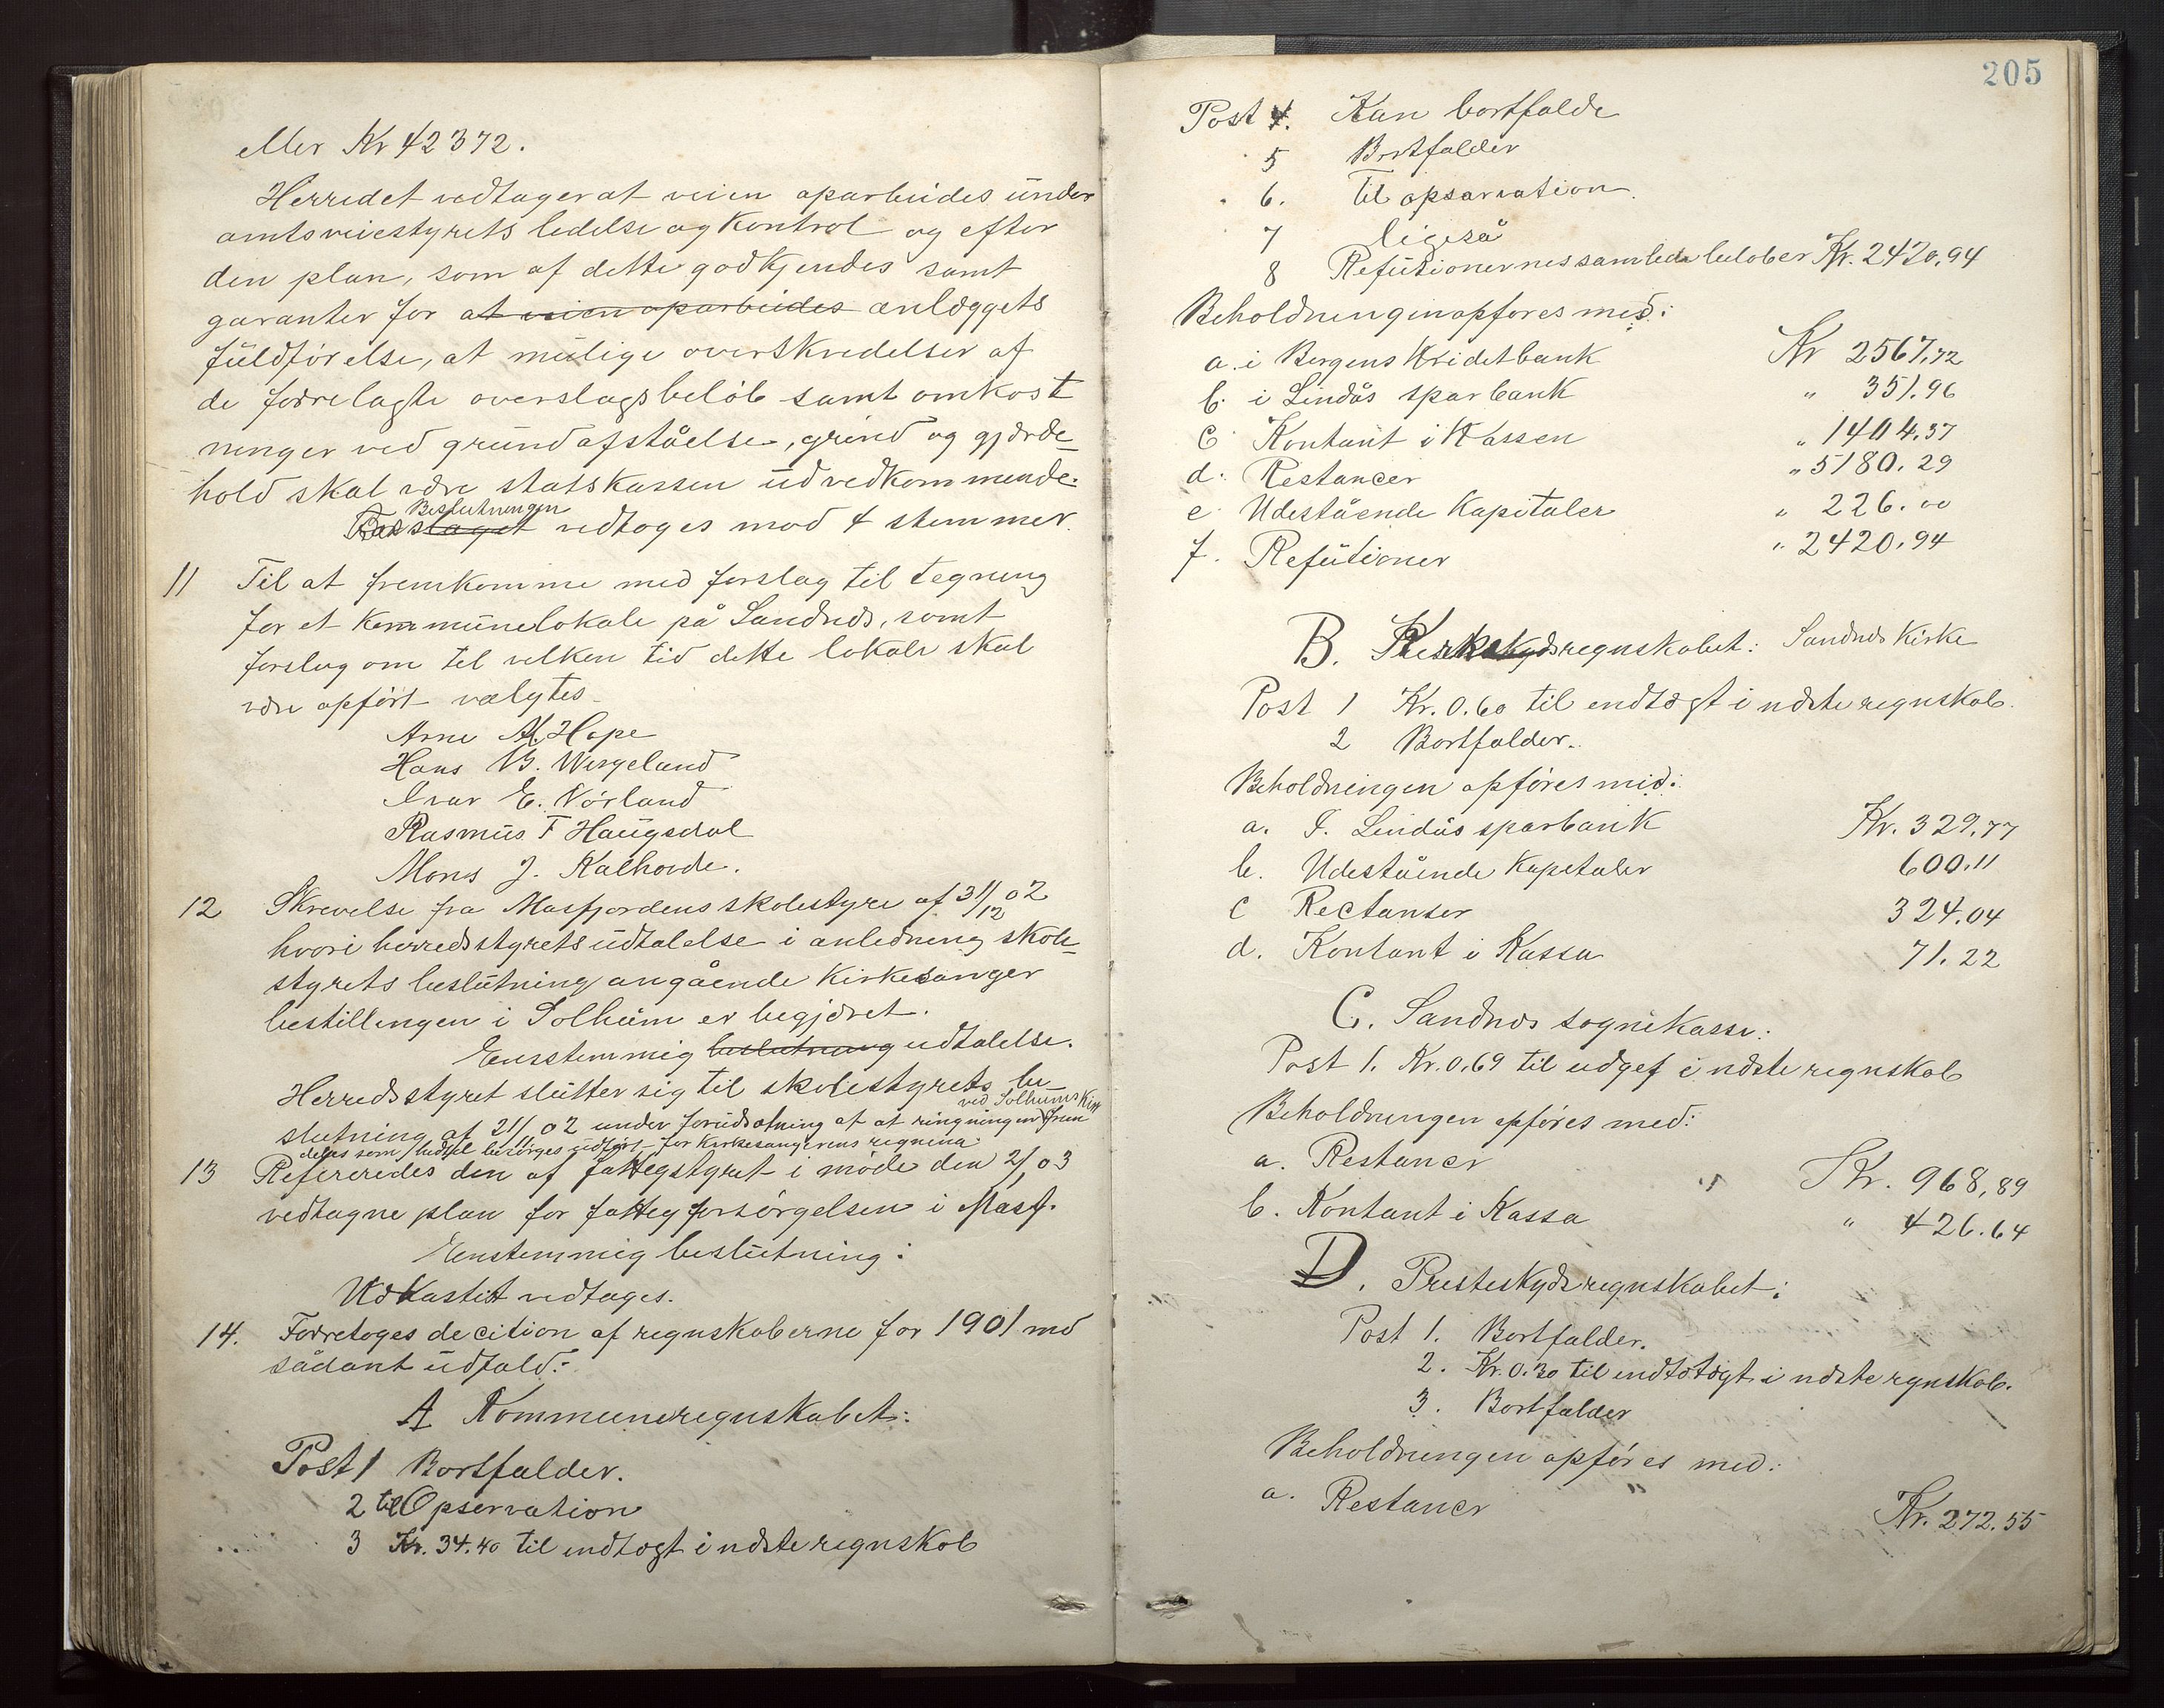 eller Kr 42372.
Herredet vedtager at veien oparbeides under
amtsveiestyrets ledelse og kontrol og efter
den plan, som af dette godkjendes samt
garanter for at veien oparbeides anlæggets
fuldførelse, at mulige overskredelser af
de forrelagte overslagsbeløb samt omkost
ninger ved grundafståelse, grind og gjærde-
hold skal være statskassen uvedkommende.
Beslutningen
Forslaget vedtoges mod 4 stemmer.
11 Til at fremkomme med forslag til tegning
for et kommunelokale på Sandnæs, samt
forslag om til velken tid dette lokale skal
være opført valgtes
Arne A. Hope
Hans B. Wergeland
Ivar E. Nørland
Rasmus T Haugsdal
Mons J. Kalhovde.
12 Skrevelse fra Masfjordens skolestyre af 31/12 02
hvori herredsstyrets udtalelse i anledning skole-
styrets beslutning angående kirkesanger
bestillingen i Solheim er begjæret.
Ensstemmig beslutning udtalelse.
Herredsstyret slutter sig til skolestyrets be
ved Solheims Kirk
slutning af 21/11 02 under forudsætning af at ringningen frem
deles som hidtil besørges udført for kirkesangerens regning
13 Refereredes den af fattegstyret i møde den 2/1 03
vedtagne plan for fatteg forsørgelsen i Masf.
Eenstemmig beslutning:
Udkastet vedtages.
14. Forretoges decition af regnskaberne for 1901 med
sådant udfald:
A Kommuneregnskabet:
Post 1 Bortfalder.
2 til Opservation
3 Kr. 34.40 til endtægt i næste regnskab
205
Post 4. Kan bortfalde
5 Bortfalder
6. Til opsarvation.
7 ligeså
8 Refusionernes samlede beløber Kr. 2420,94
Beholdningen opføres med:
a. i Bergens Kridetbank Kr 2567,72
b. i Lindås sparbank " 351.96
c. Kontant i Kassen " 1404.37
d. Restancer " 5180.29
e. Udestående Kapitaler " 226.00
f. Refusioner " 2420.94
B. Kirkeregnskabet: Sandnes Kirke
Post 1 Kr. 0.60 til endtægt i næste regnskab.
2 Bortfalder.
Beholdningen opføres med:
a. I. Lindås sparbank Kr. 329,77
b. Udestående Kapetaler 600.11
c Rectanser 324.04
d. Kontant i Kassa 71.22
C. Sandnæs sognekasse:
Post 1. Kr. 0.69 til udgef i næste regnskab
Beholdningen opføres med:
a. Restancer Kr. 968,89
b. Kontant i Kassa " 426.64
D. Presteskydsregnskabet:
Post 1. Bortfalder.
2. Kr. 0.30 til endtægt i næste regnskab.
3. Bortfalder
Beholdningen opføres med:
a. Restancer Kr. 272.55